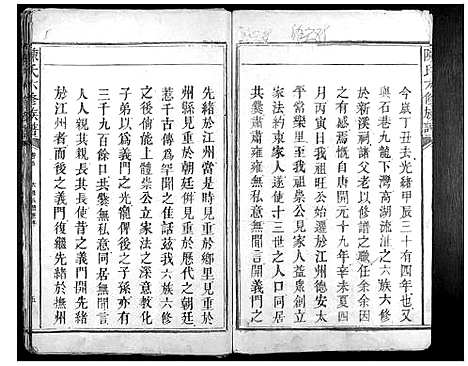 陳氏六修族譜
今歲丁丑去光緒甲辰三十有四年也又
與石巷九龍下灣高湖流之六族六修
於新漢祠諸父老以修譜之職任余余因
之有感慨自唐開元十九年辛未夏四
月丙寅日我祖旺公始遷於江州德安太
平常樂里至我祖崇公見家人益眾創立
家法約束家人遂使十三世之人口同居
共爨肅肅雍雍無私意無間言開義門之
先緒於江州當是時見重於鄉里見重於
州縣見重於見重於歷代之朝廷
惹千古傳為罕聞之佳話茲我六族六修
上體崇公立家法之深意教化
子弟以為義門之光寵俾後之子孫亦有
三千九百餘口共爨無私意同居無間言
人人親其親長其長使昔之義門開先緒
於江州者後之義門復繼先緒於撫州
陳氏六修族譜
五